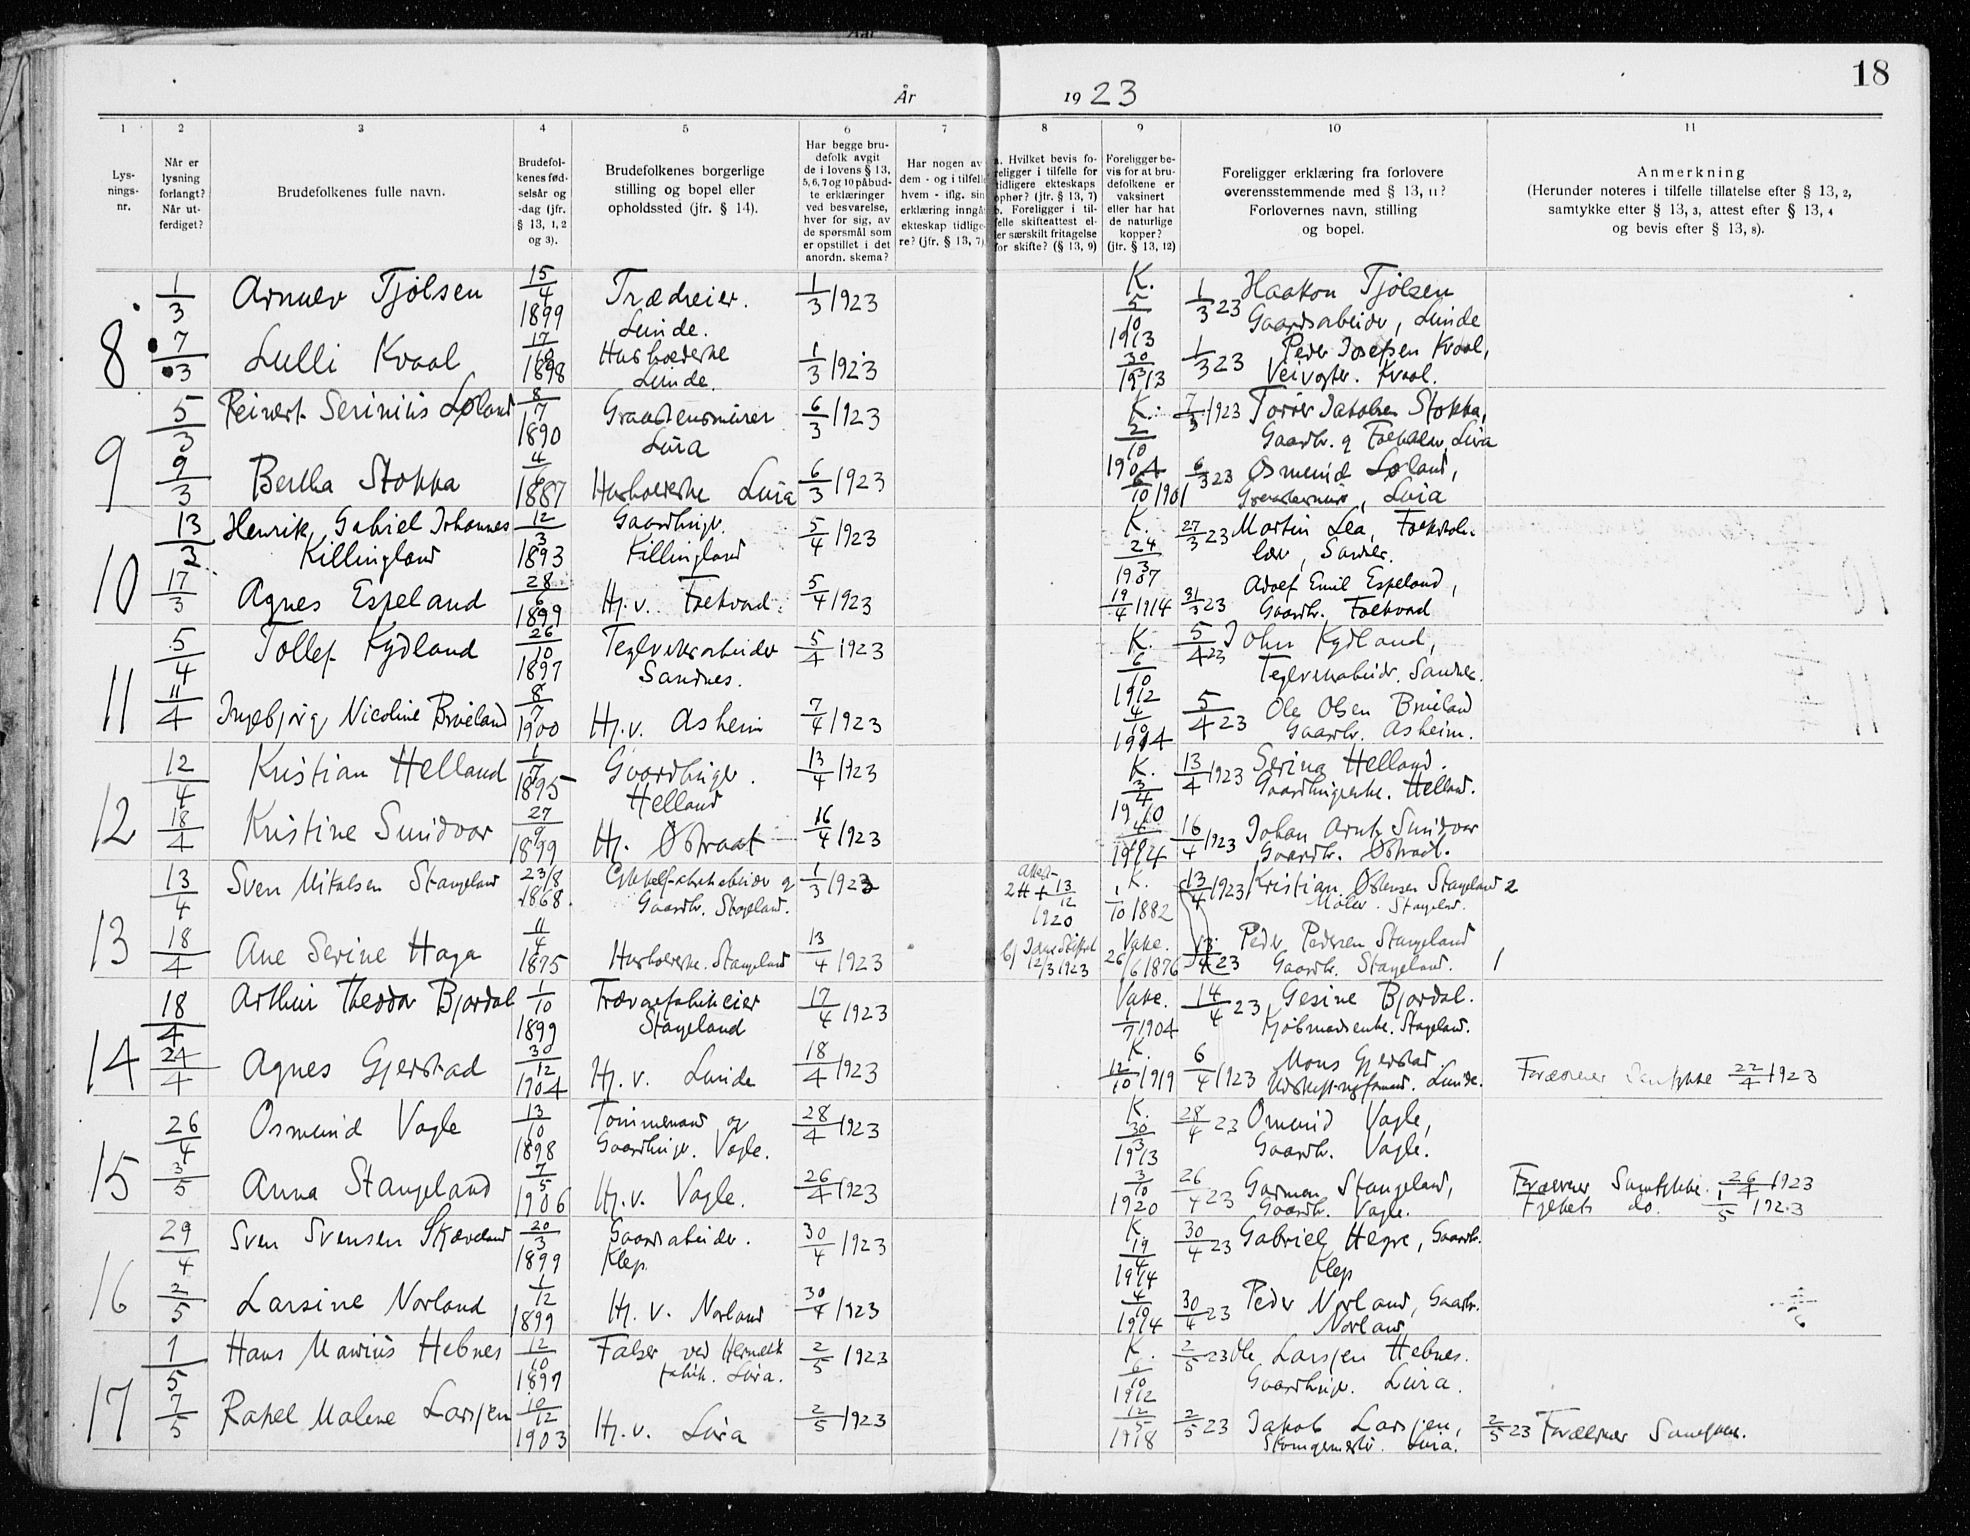 18
År 1923
1 2 3 4 5 6 7 8 9 10 11
Lys-
nings-
nr.
Når er
lysning
forlangt?
Når ut-
ferdiget?
Brudefolkenes fulle navn.
Brudefol-
kenes fød-
selsår og
-dag (jfr.
§ 13, 1, 2
og 3).
Brudefolkenes borgerlige
stilling og bopel eller
opholdssted (jfr. § 14).
Har begge bru-
defolk avgit
de i lovens § 13,
5, 6, 7 og 10 påbud-
te erklæringer
ved besvarelse,
hver for sig, av
de spørsmål som
er opstillet i det
anordn. skema?
Har nogen av
dem - og i tilfelle
hvem - iflg. sin
erklæring inngåt
ekteskap tidlige-
re? (jfr. § 13, 7)
a. Hvilket bevis fo-
religger i tilfelle for
tidligere ekteskaps
ophør? (jfr. § 13, 7)
b. Foreligger i til-
felle skifteattest el-
er særskilt fritagelse
for skifte? (§ 13, 9)
Foreligger be-
vis for at bru-
defolkene er
vaksinert
eller har hat
de naturlige
kopper?
(jfr. § 13, 12)
Foreligger erklæring fra forlovere
overensstemmende med § 13, 11?
Forlovernes navn, stilling
og bopel.
Anmerkning
(Herunder noteres i tilfelle tillatelse efter § 13, 2,
samtykke efter § 13, 3, attest efter § 13, 4
og bevis efter § 13, 8).
8
1/3 Arnulv Tjølsen 15/4 1899 Trædreier. Lunde. 1/3 1923 K. 5/10 1913 1/3 23 Haakon Tjølsen
Gaardsarbeider, Lunde
7/3 Lulli Kvaal 1898 Husholderske Lunde. 1/3 1923 30/3 1913 1/3 23 Peder Josefsen Kvaal,
Veivogter. Kvaal.
9
5/3 Reinert Serinius Løland 8/7 1890 Graastensmurer Lura 6/3 1923 K. 2/10 1904 7/3 1923 Torger Jakobsen Stokka,
Gaardbr. Lura
9/3 Bertha Stokka 1887 Husholderske Lura 6/3 1923 1901 6/3 23 Osmund Løland,
Lura
10
13/3 Henrik Gabriel Johannes
Killingland 12/3 1893 Gaardbruger Killingland 5/4 1923 K. 24/3 1907 27/3 23 Martin Lea,
Sandnes.
17/3 Agnes Espeland 28/6 1899 Hj. v. Foltvad. 5/4 1923 19/4 1914 31/3 23 Adolf Emil Espeland,
Gaardbr. Foltvad
11
5/4 Tollef Kydland 26/10 1897 Teglverksarbeider Sandnes. 5/4 1923 K. 6/10 1912 5/4 23 John Kydland,
Teglverksarbeider. Sandnes.
11/4 Ingebjørg Nicoline Brueland 8/7 1900 Hj. v. Asheim 7/4 1923 4/10 1914 5/4 23 Ole Olsen Brueland
Gaardbr. Asheim.
12
12/4 Kristian Helland 1/7 1895 Gaardbruger. Helland 13/4 1923 K. 3/4 1910 13/4 1923 Serina Helland.
Gaardbrugerske. Helland.
18/4 Kristine Sundvor 27/9 1899 Hj. Østraat 16/4 1923 1914 16/4 1923 Johan Arnt Sundvor
Gaardbr. Østraat.
13
13/4 Sven Mikalsen Stangeland 23/8 1868. Cykkelfabrikarbeider og Gaardbr. Stangeland. 1/3 1923 Attest 13/12 1920 K. /10 1882 13/4 1923 Kristian Stangeland 2
Maler. Stangeland.
18/4 Ane Serine Haga 11/4 1875 Husholderske. Stangeland 13/4 1923 12/3 1923 Vakc. 26/6 1876 13/4 23 Peder Pedersen Stangeland
Gaardbr. Stangeland. 1
14
18/4 Arthur Theodor Bjordal 1/10 1899 Trævarefabrikeier Stangeland 17/4 1923 Vakc. 1/7 1904 14/4 23 Gesine Bjordal.
Kjøbmandsenke. Stangeland.
24/4 Agnes Gjerstad 30/12 1904 Hj. v. Lunde 18/4 1923 K. 12/10 1919 6/4 1923 Mons Gjerstad
Udskiftningsformand. Lunde. Forældrenes Samtykke 22/4 1923
15
26/4 Osmund Vagle 13/10 1898 Tømmermand og Gaardbruger. Vagle. 28/4 1923 K. 30/3 1913 28/4 23 Omund Vagle,
Gaardbr. Vagle.
3/5 Anna Stangeland 7/5 1906 Hj. v. Vagle. 26/4 1923 3/10 1920 26/4 23 Gorman Stangeland,
Gaardbr. Vagle. Forældrenes Samtykke. 26/4 1923
Fylkets do. 1/5 1923
16
29/4 Sven Svensen Skjæveland 20/3 1899 Gaardsarbeider. Klep 30/4 1923 K 19/4 1914 30/4 23 Gabriel Hegre, Gaardbr.
Klep
2/5 Larsine Norland 1/12 1899 Hj. v. Norland 30/4 1923 4/10 1914 30/4 23 Peder Norland, Gaardbr.
Norland
17
1/5 Hans Marius Hebnes 12/10 1897 Falser ved Hermetikfabrik. Lura. 2/5 1923 K. 6/10 1912 2/5 23 Ole Larsen Hebnes.
Gaardbruger. Lura.
7/5 Rakel Malene Larsen 10/12 1903 Hj. v. Lura 2/5 1923 12/5 1918 2/5 23 Jakob Larsen,
Lura. 2/5 23 Forældrenes Samtykke.